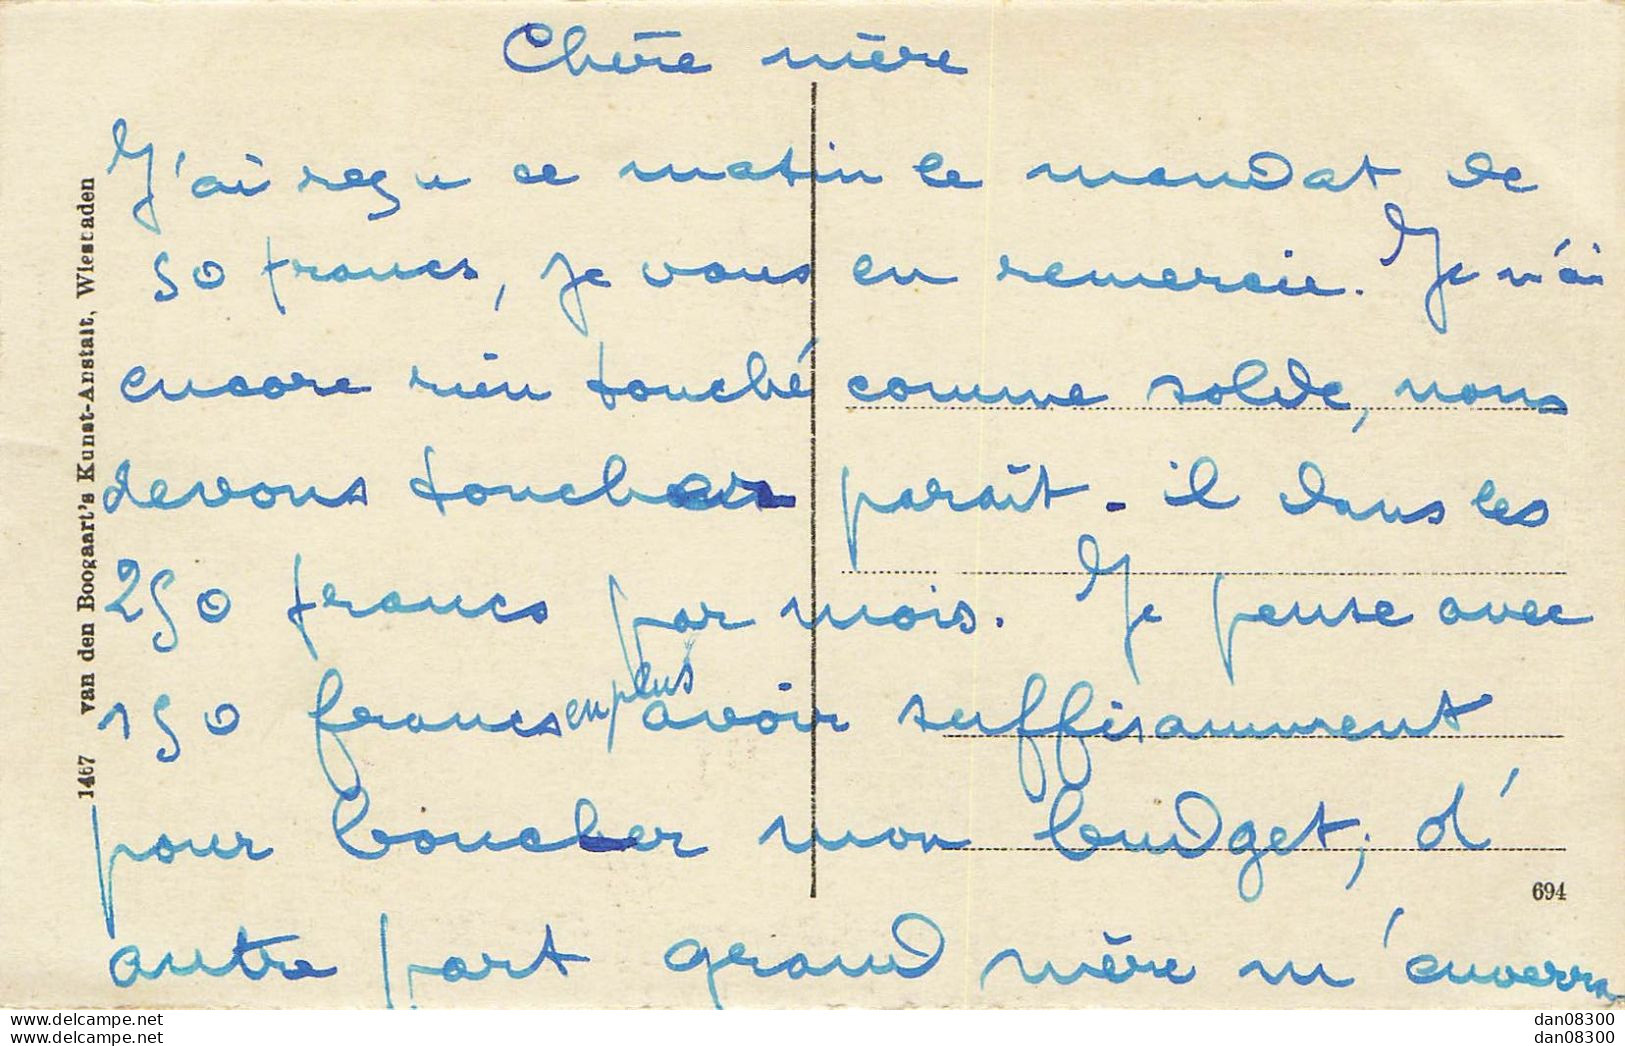 Chère mère
J'ai reçu ce matin le mandat de
50 francs, je vous en remercie. Je n'ai
encore rien touché comme solde, nous
devons toucher paraît-il dans les
250 francs par mois. Je pense avec
150 francs en plus avoir suffisamment
pour boucher mon budget; d'
autre part grand mère m'enverra
1467 van den Boogaart's Kunst-Anstalt, Wiesbaden
694
www.delcampe.net
www.delcampe.net
dan08300
dan08300